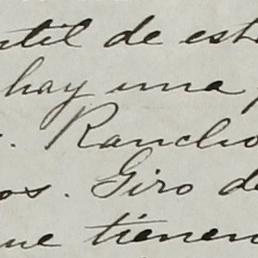 de est
hay una
. Rancho
os. Giro de
ue tienen